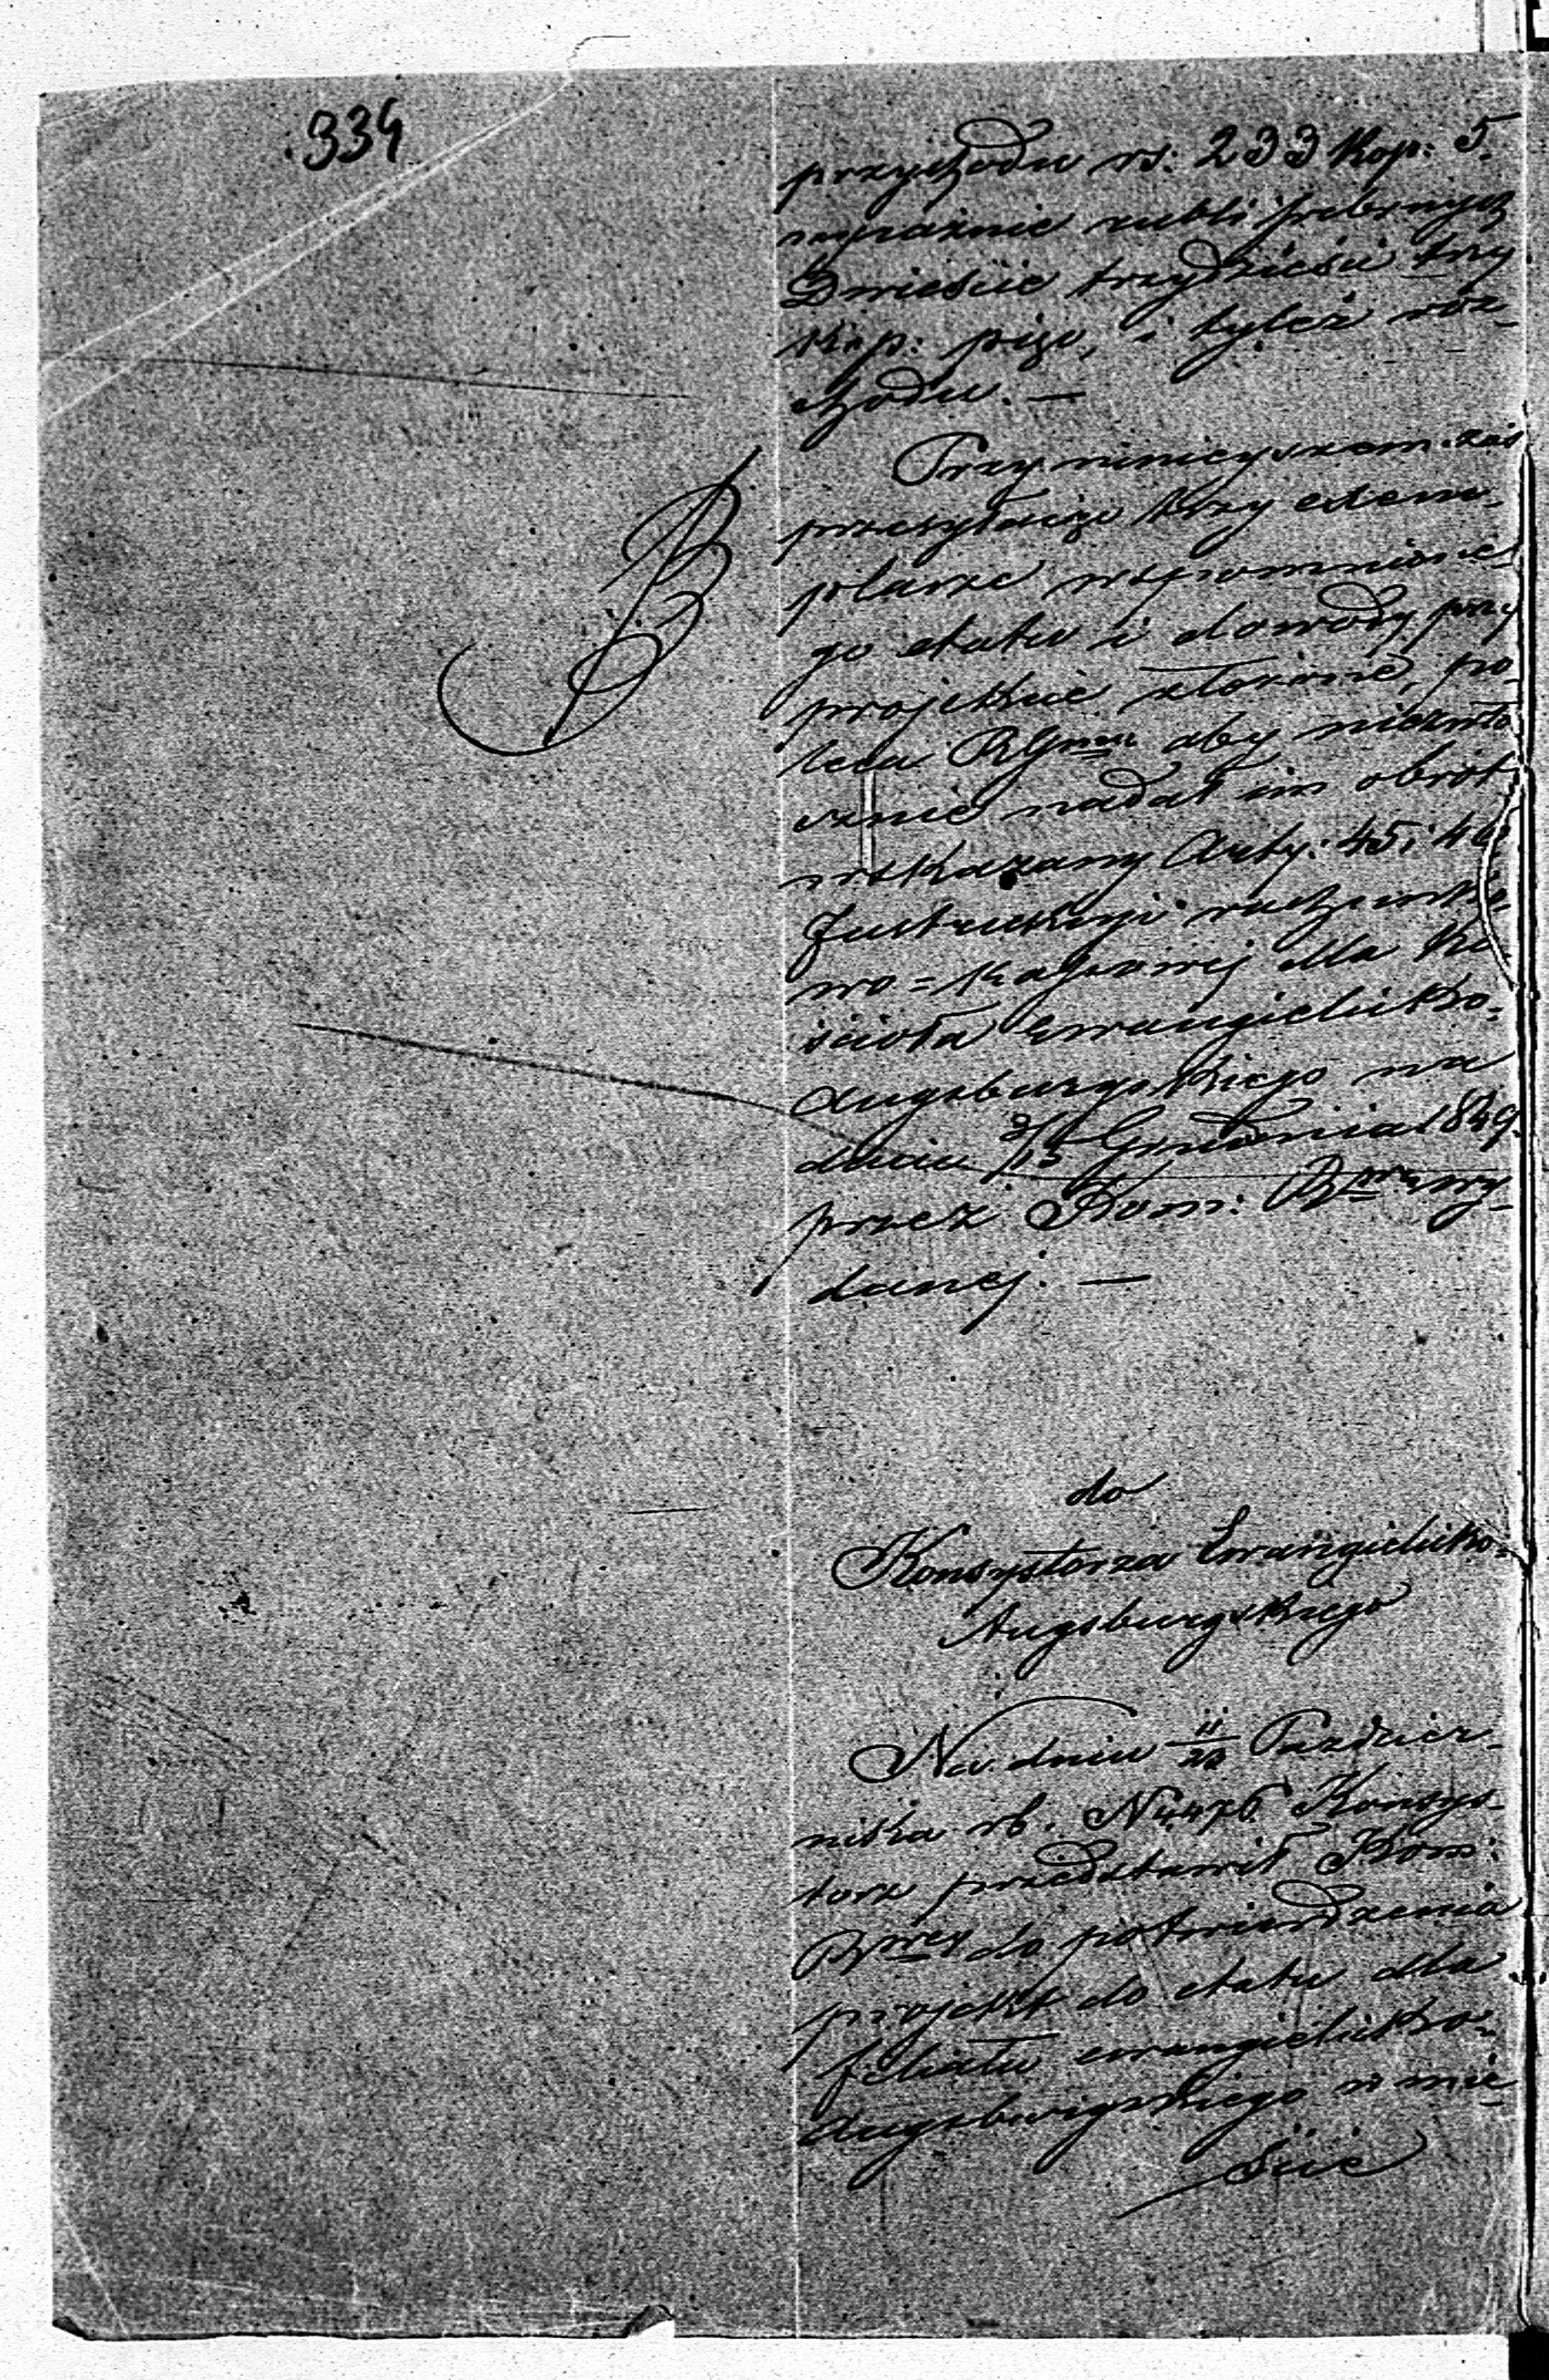 334
przychodu rs: 233 kop: 5.
wyraźnie rubli srebrnych
Dwieście trzydzieści trzy
kop: pięć, i tyleż roz-
chodu. —
Przy niniejszem zaś
przesyłając trzy exem-
plarze wspomnione-
go etatu i dowody przy
projekcie złożone, po-
leca RGmu aby niezwło-
cznie nadał im obrót
wskazany Arty: 45 i 46
Instrukcyi rachunko-
wo=kassowej dla Ko-
ścioła Ewangielicko-
Augsburgskiego na
dniu 3/15 Grudnia 1849.
przez Kom: Rz wy-
danej. —
do
Konsystorza Ewangielicko-
Augsburgskiego
Na dniu 11/23 Paździer-
nika rb. N 4476 Konsys-
torz przedstawił Kom:
Rz do potwierdzenia
projekt do etatu dla
filiału ewangielicko-
Augsburgskiego w mie-
ście